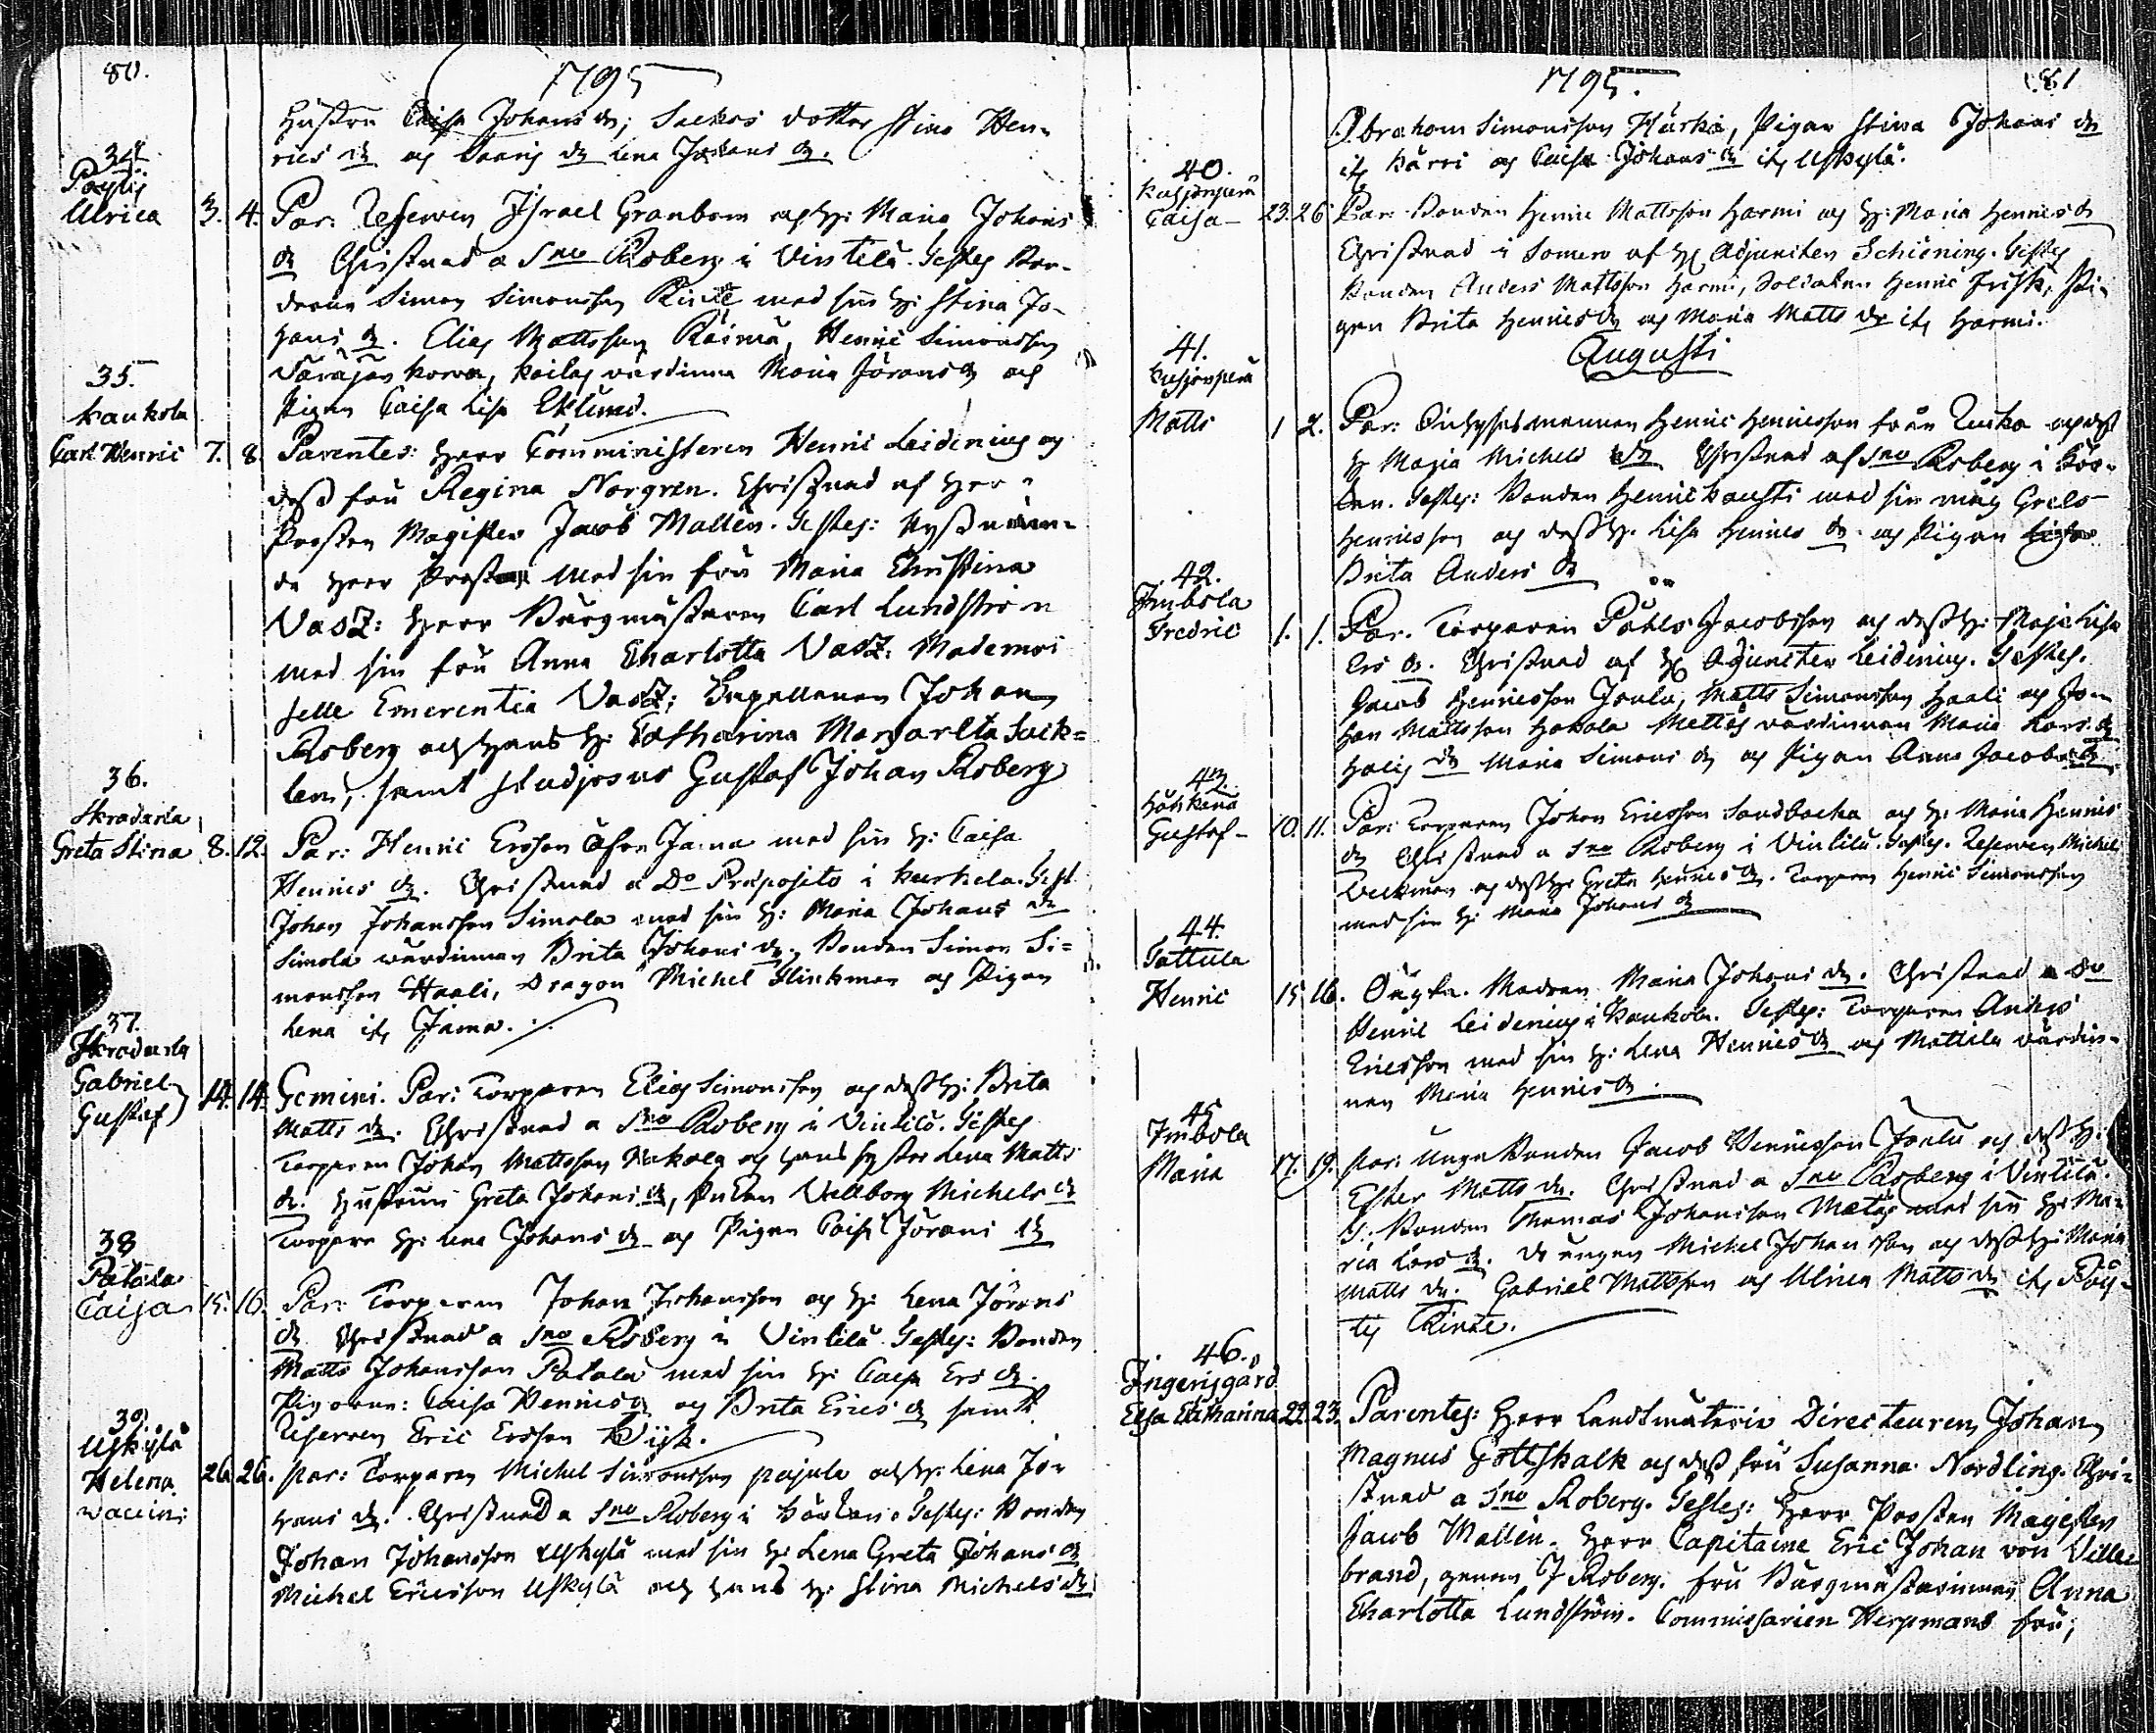 80.
1795
Hustru Caisa Johans dr; Suckos dotter Stina Hen-
rics dr og Saaris dr Lena Johans dr.
34.
Pöytiö
Ulrica 3. 4. Par: Reserven Israel Granbom og H: Maria Johans
dr Christnad a Sneo Roberg i Vintelä. Testes Bon-
Simon Simonsson med sin H: Stina Jo-
hans dr. Elias Mattsson Raimä, Henric Simonsson
värdinna Maria Jörans dr og
Pigan Caisa Lisa Eklund.
35.
Kaukola
Carl Henric 7. 8. Parentes: Herr Comministeren Henric Leidenius og
dess fru Regina Norgren. Christnad af Herr
Prosten Magister Jacob Mallèn. Testes: 
de Herr Prosten med sin fru Maria Christina
Vasz: Herr Borgmästaren Carl Lundström
med sin fru Anna Charlotta Vasz. Mademoi
selle Emerentia Vasz; Capellanen Johan
Roberg och hans H: Catharina Margareta Sack=
len, samt studiosus Gustaf Johan Roberg
36.
Skradarla
Greta Stina 8. 12. Par: Henric Ersson Jama med sin H: Caisa
Henrics dr. Christnad a Do Præposito i Kurkela. Test.
Johan Johansson Simola med sin H: Maria Johans dr
Simola wärdinnan Brita Johans dr, Bonden Simon Si=
monsson Haali, Dragon Michel Flinkman og Pigan
Lena if Jama.
37.
Skradarla
Gabriel
Gustaf 14. 14. Gemini. Par: Torparen Elias Simonsson og dess H: Brita
Matts dr. Christnad a Sno Roberg i Vintilä. Testes
Torparen Johan Mattsson og hans syster Lena Matts
dr. Hustrun Greta Johans dr, Vallborg Michels dr
Torpare H: Lena Johans dr og Pigan Caisa Jörans dr
38
Palala
Caisa 15. 16. Par: Torparen Johan Johansson og H: Lena Jörans
dr Christnad a Sno Roberg i Vintilä. Testes: Bonden
Matts Johansson Palala med sin H: Caisa Ers dr.
Pigorna: Caisa Henrics dr og Brita Erics dr samt
Reserven Eric Ersson
39.
Uskylä
Helena 26. 26. Par: Torparen Michel Simonsson Pajula och H: Lena Jo-
vaccin: hans dr. Christnad a Sno Roberg i Testes: Bonden
Johan Johansson Uskylä med sin H: Lena Greta Johans dr
Michel Ericsson Uskylä och hans H: Stina Michels dr
1795.
81
Abraham Simonsson Härkä, Pigan Stina Johans dr
if Kärri og Caisa Johans dr if Uskylä.
40.
Caisa 23. 26. Par: Bonden Henric Mattsson Harmi og H: Maria Henrics dr
Christnad i Somero af H: Adjuncten Schiöning. Testes
Bonden Anders Mattsson Harmi, Soldaten Henric Frisk, Pi-
gan Brita Henrics dr og Maria Matts dr if Harmi.
Augusti
41.
Matts 1 2. Par: Inhyses mannen Henric Henricsson från og dess
H Maria Michels dr Christnad af Sno Roberg i
Testes: Bonden Henric med sin måg Grels
Henricsson og dess H. Lisa Henrics dr og Pigan
Brita Anders dr
42.
Imbola
Fredric 1. 1. Par. Torparen Påhls Jacobsson og dess H: Maja Lisa
Ers dr. Christnad af H: Adjuncten Leidenius. Testes.
Jacob Henricsson Joulu, Matts Simonsson Haali og Jo-
han Mattsson Hakala Mettäs värdinnan Maria Lars dr
Halis dr Maria Simons dr og Pigan Anna Jacobs dr
43.
Gustaf 10. 11. Par: Torparen Johan Ericsson Sandbacka og H: Maria Henrics
dr Christnad a Sno Roberg i Vintilä. Testes. Reserven Michel
Veckman og dess H: Greta Henrics dr. Torparen Henric Simonsson
med sin H: Maria Johans dr
44.
Tattula
Henric 15. 16. Modren Maria Johans dr. Christnad a Do
Henric Leidenius i Kaukola. Testes: Torparen Anders
Ericsson med sin H: Lena Henrics dr og Mattila värdin-
nan Maria Henrics dr.
45
Imbola
Maria 17. 19. Par: Unga Bonden Jacob Henricsson Joulu og dess H:
Ester Matts dr. Christnad a Sno Roberg i Vintilä.
T: Bonden Thomas Johansson Metäs med sin H: Ma-
ria Lars dr. Drängen Michel Johansson og dess H: Maria
Matts dr. Gabriel Mattsson og Ulrica Matts dr if Pöy-
tis
46.
Ingerisgård
Elsa Catharina 22. 23. Parentes: Herr Landtmäterie Directeuren Johan
Magnus Gottskalk og dess fru Susanna Nordling. Chri-
stnad a Sno Roberg. Testes: Herr Prosten Magister
Jacob Mallèn. Herr Capitaine Eric Johan von Ville-
brand, genom J Roberg. Fru Borgmästarinnan Anna
Charlotta Lundström. Commissarien Herpmans fru,